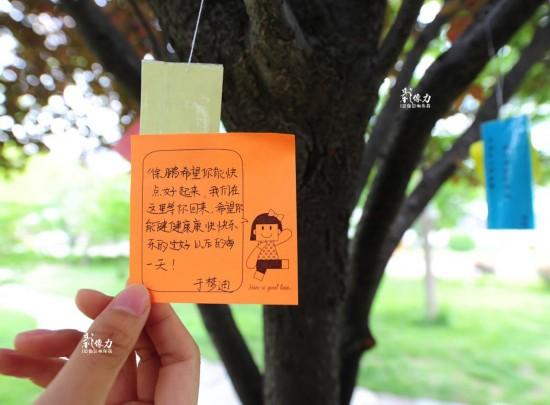 徐鹏希望你能快
点好起来，我们在
这里等你回来，希望你
能健健康康快快乐
乐的过好以后的每
一天！
于梦迪
Have a good time.
影像力
影像力